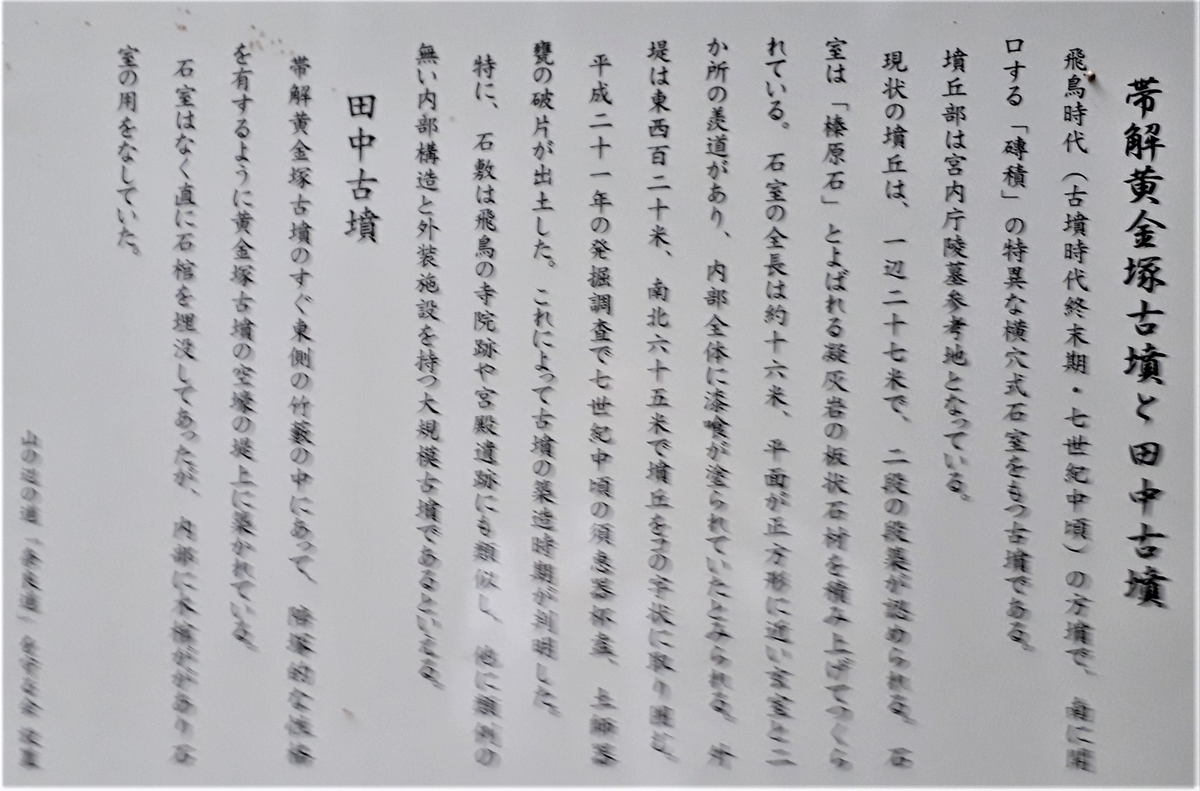 帯解黄金塚古墳と田中古墳
飛鳥時代（古墳時代終末期・七世紀中頃）の方墳で、南に開
口する「磚積」の特異な横穴式石室をもつ古墳である。
墳丘部は宮内庁陵墓参考地となっている。
現状の墳丘は、一辺二十七米で、二段の段築が認められる。石
室は「榛原石」とよばれる凝灰岩の板状石材を積み上げてつくら
れている。石室の全長は約十六米、平面が正方形に近い玄室と二
か所の羨道があり、内部全体に漆喰が塗られていたとみられる。外
堤は東西百二十米、南北六十五米で墳丘をコの字状に取り囲む。
平成二十一年の発掘調査で七世紀中頃の須恵器杯蓋、土師器
甕の破片が出土した。これによって古墳の築造時期が判明した。
特に、石敷は飛鳥の寺院跡や宮殿遺跡にも類似し、他に類例の
無い内部構造と外装施設を持つ大規模古墳であるといえる。
田中古墳
帯解黄金塚古墳のすぐ東側の竹藪の中にあって、陪塚的な性格
を有するように黄金塚古墳の空壕の堤上に築かれている。
石室はなく直に石棺を埋没してあったが、内部に木棺ががあり石
室の用をなしていた。
山の辺の道「奈良道」を守る会